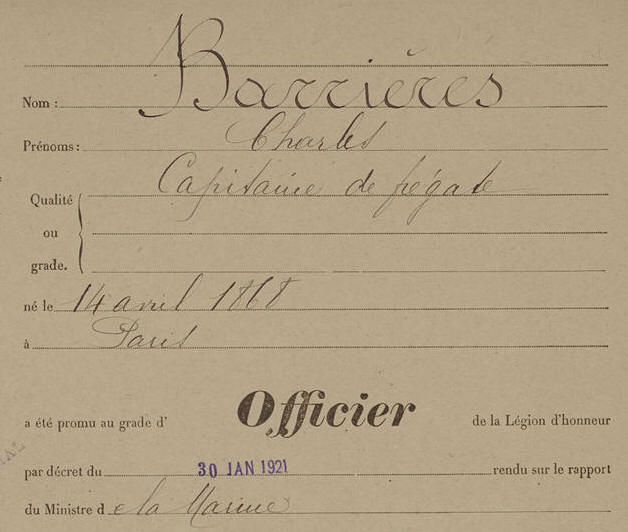 Nom : Barrières
Prénoms : Charles
Qualité Capitaine de frégate
ou
grade.
né le 14 avril 1868
à Paris
a été promu au grade d' Officier de la Légion d'honneur
par décret du 30 JAN 1921 rendu sur le rapport
du Ministre de la Marine